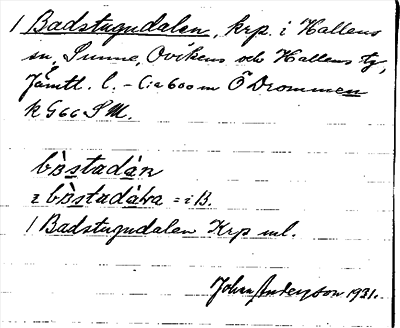 1 Badstugudalen, krp. i Hallens
sn, Sunne, Ovikens och Hallens tg,
Jämtl. l. - C:a 600 m Ö Drommen
k G 66 S M.
bòstadán
2 bòstadáṅa = i B.
1 Badstugudalen Krp ml.
John Anderson 1931.